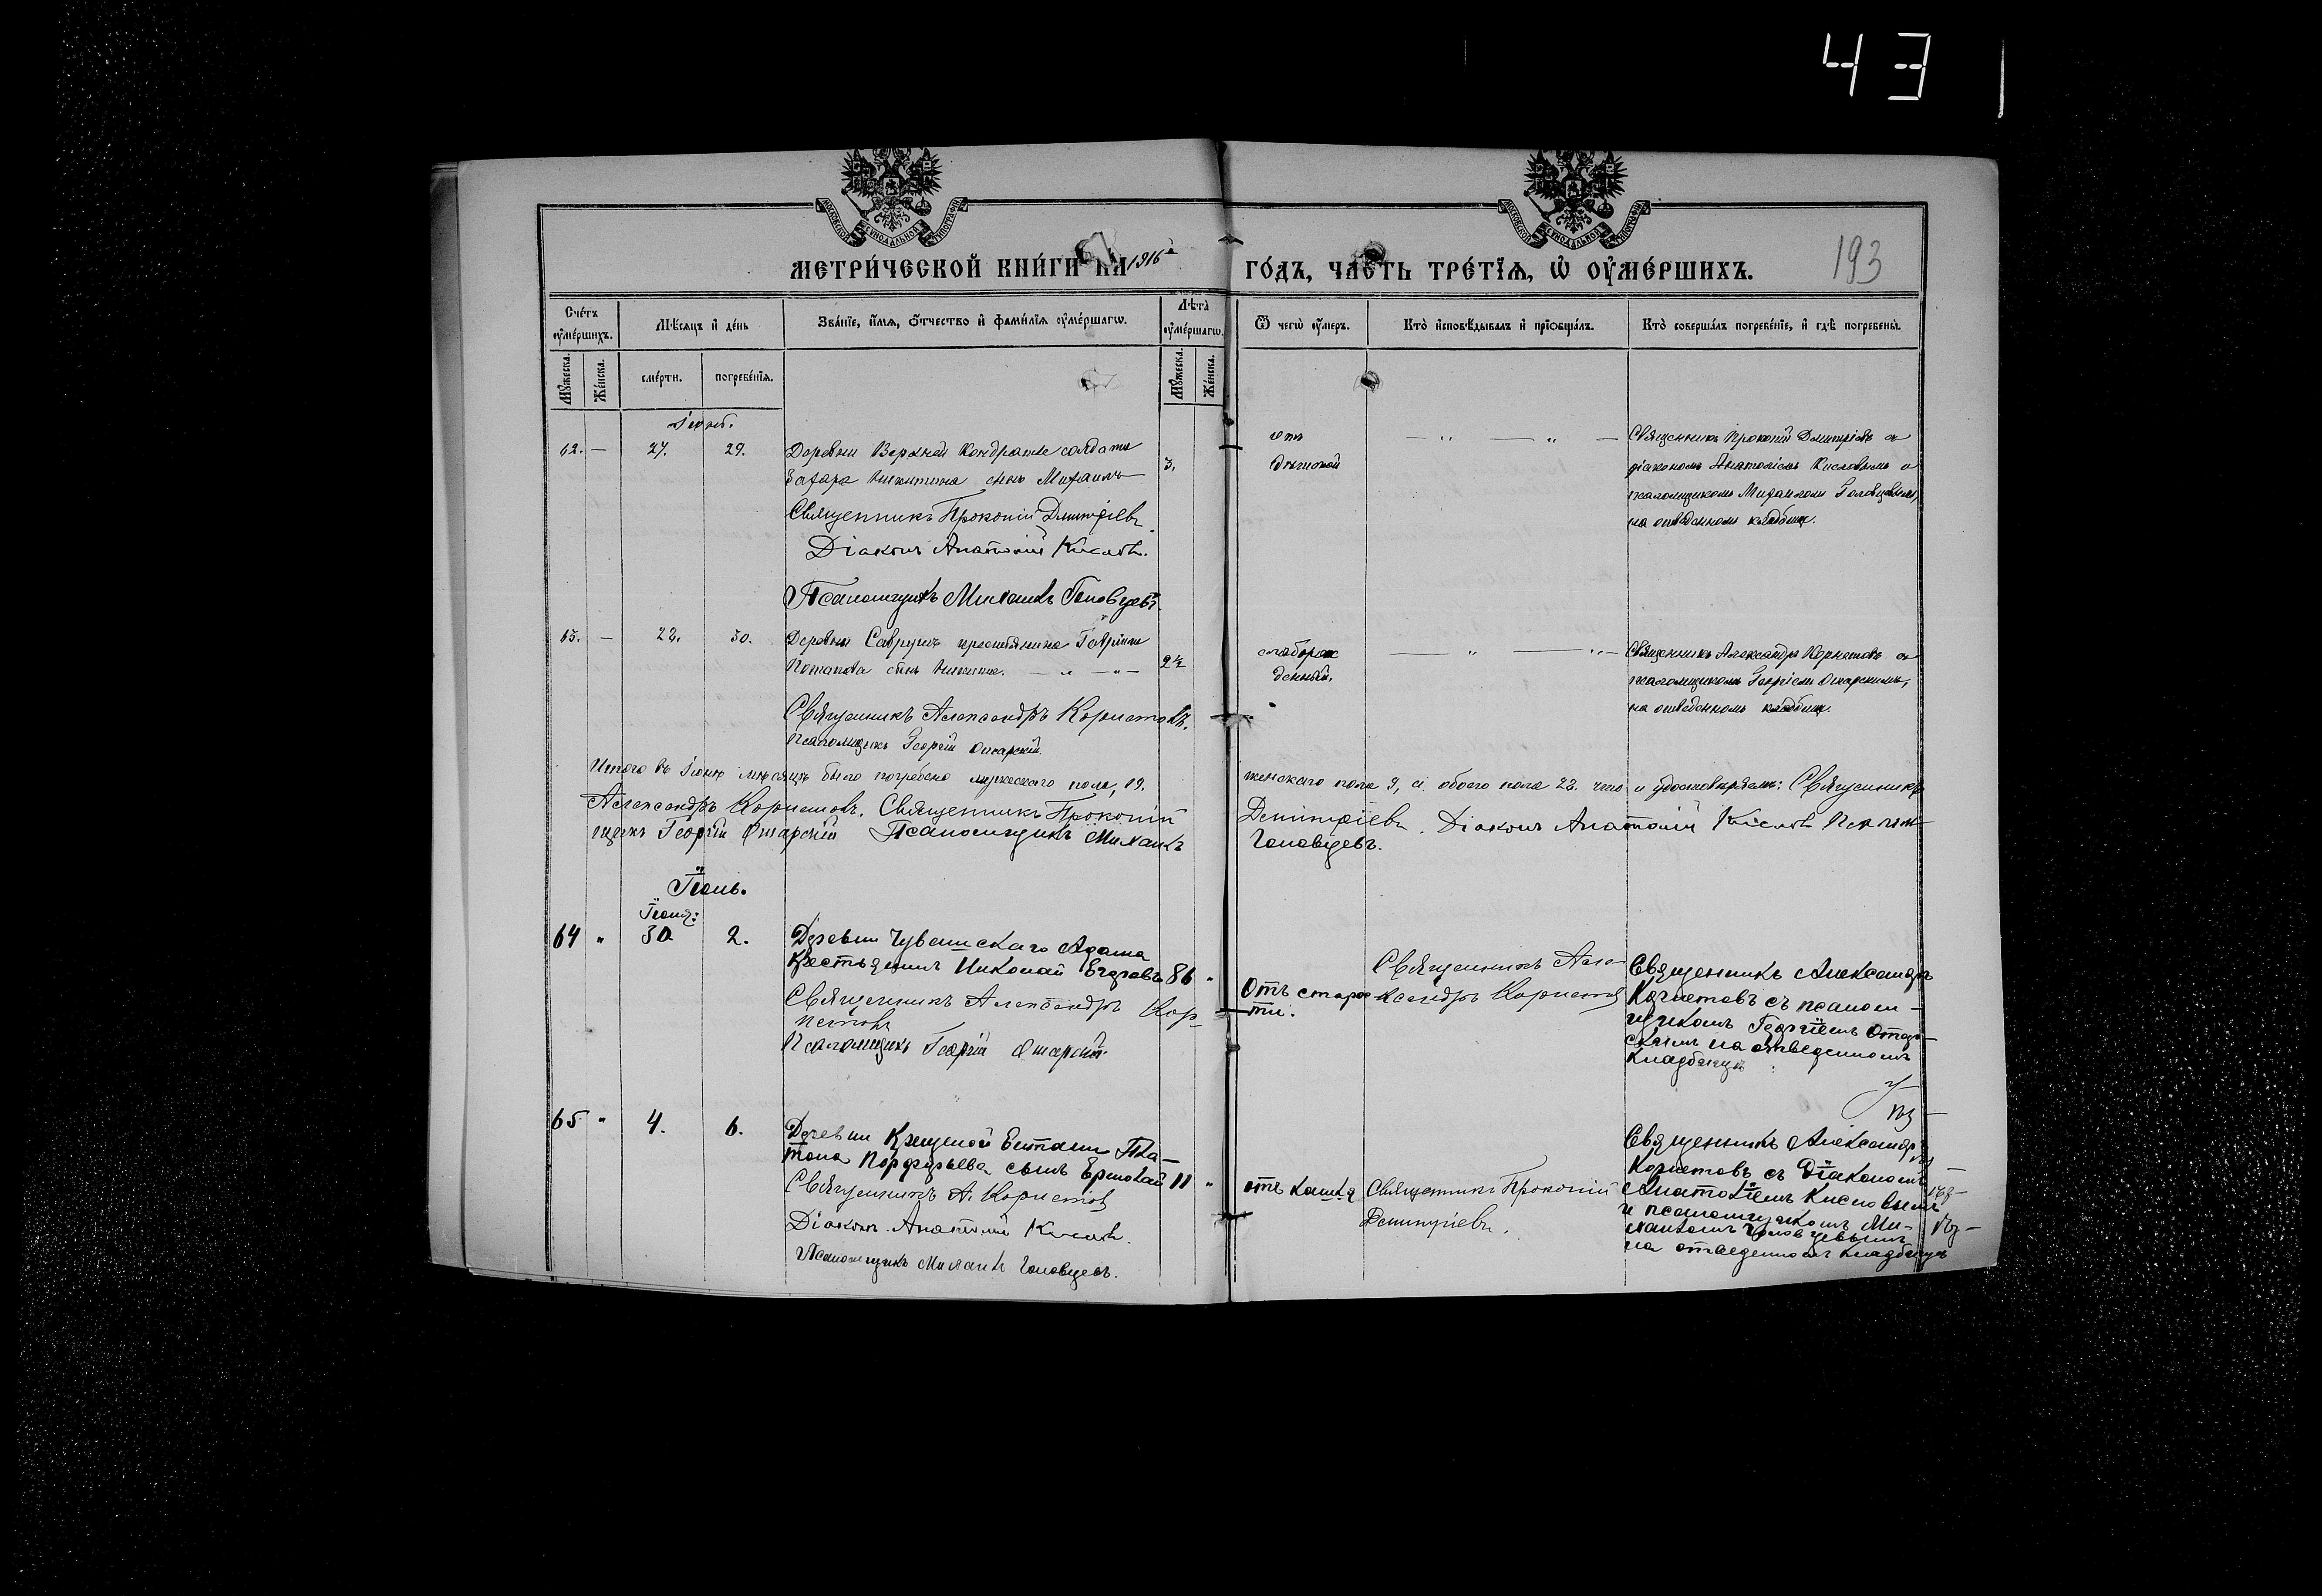 43
МОСКОВСКОЙ СѴНОДАЛЬНОЙ ТИПОГРАФІИ
МОСКОВСКОЙ СѴНОДАЛЬНОЙ ТИПОГРАФІИ
МЕТРИ́ЧЕСКОЙ КНИ́ГИ НА 1916 ГО́ДЪ, ЧА́СТЬ ТРЕ́ТЇѦ, Ѽ ОУ҆МЕ́РШИХЪ.
193
Сче́тъ оу҆ме́ршихъ.
Мѣ́сѧцъ и҆ де́нь
Зва́нїе, и҆́мѧ, ѻ҆́тчество и҆ фами́лїѧ оу҆ме́ршагѡ.
Лѣ́та оу҆ме́ршагѡ.
Ѿ чегѡ̀ оу҆́меръ.
Кто̀ и҆сповѣ́дывалъ и҆ прїѡбща́лъ.
Кто̀ соверша́лъ погребе́нїе, и҆ гдѣ̀ погребены̀.
Мꙋ́жеска.
Же́нска.
сме́рти.
погребе́нїѧ.
Мꙋ́жеска.
Же́нска.
62. — 27. 29. Деревни Верхней Кондраты солдата
Захара Никитина сынъ Михаилъ 3.
Священникъ Прокопій Дмитріевъ
Діаконъ Анатолій Кисловъ.
Псаломщикъ Михаилъ Головцевъ.
отъ
Священникъ Прокопій Димитріевъ съ
діакономъ Анатоліемъ Кисловымъ и
псаломщикомъ Михаиломъ Головцевымъ,
на отведенномъ кладбищѣ.
63. — 30. Деревни Саврушъ крестьянина Гавріила
Потапова сынъ Никита. 2½
Священникъ Александръ Корнетовъ.
Псаломщикъ Георгій Отарскій.
слаборож
денный.
Священникъ Александръ Корнетовъ съ
псаломщикомъ Георгіемъ Отарскимъ,
на отведенномъ кладбищѣ.
Итого въ Іюнѣ мѣсяцѣ было погребено мужескаго пола, 19.
женскаго пола 9, а обоего пола 28. что и удостовѣряемъ: Священникъ
Александръ Корнетовъ. Священникъ Прокопій
Димитріевъ. Діаконъ Анатолій Кисловъ Псалом-
щикъ Георгій Отарскій Псаломщикъ Михаилъ
Головцевъ.
Іюль.
Іюня:
64 " 30 2. Деревни Чувашскаго Адама
крестьянинъ Николай Егоровъ 86 "
Священникъ Александръ Кор-
нетовъ
Псаломщикъ Георгій Отарскій.
Отъ старос
ти.
Священникъ Але-
ксандръ Корнетовъ
Священникъ Александръ
Корнетовъ съ псалом-
щикомъ Георгіемъ Отар-
скимъ на отведенномъ
кладбищѣ
65 " 4. 6. Деревни Крещеной Елтани Пла-
тона Порфирьева сынъ Ермолай 11 "
Священникъ А. Корнетовъ
Діаконъ Анатолій Кисловъ.
Псаломщикъ Михаилъ Головцевъ.
отъ кашля
Священникъ Прокопій
Димитріевъ.
Священникъ Александръ
Корнетовъ съ Діакономъ
Анатоліемъ Кисловымъ
и псаломщикомъ Ми-
хаиломъ Головцевымъ
на отведенномъ кладбищѣ